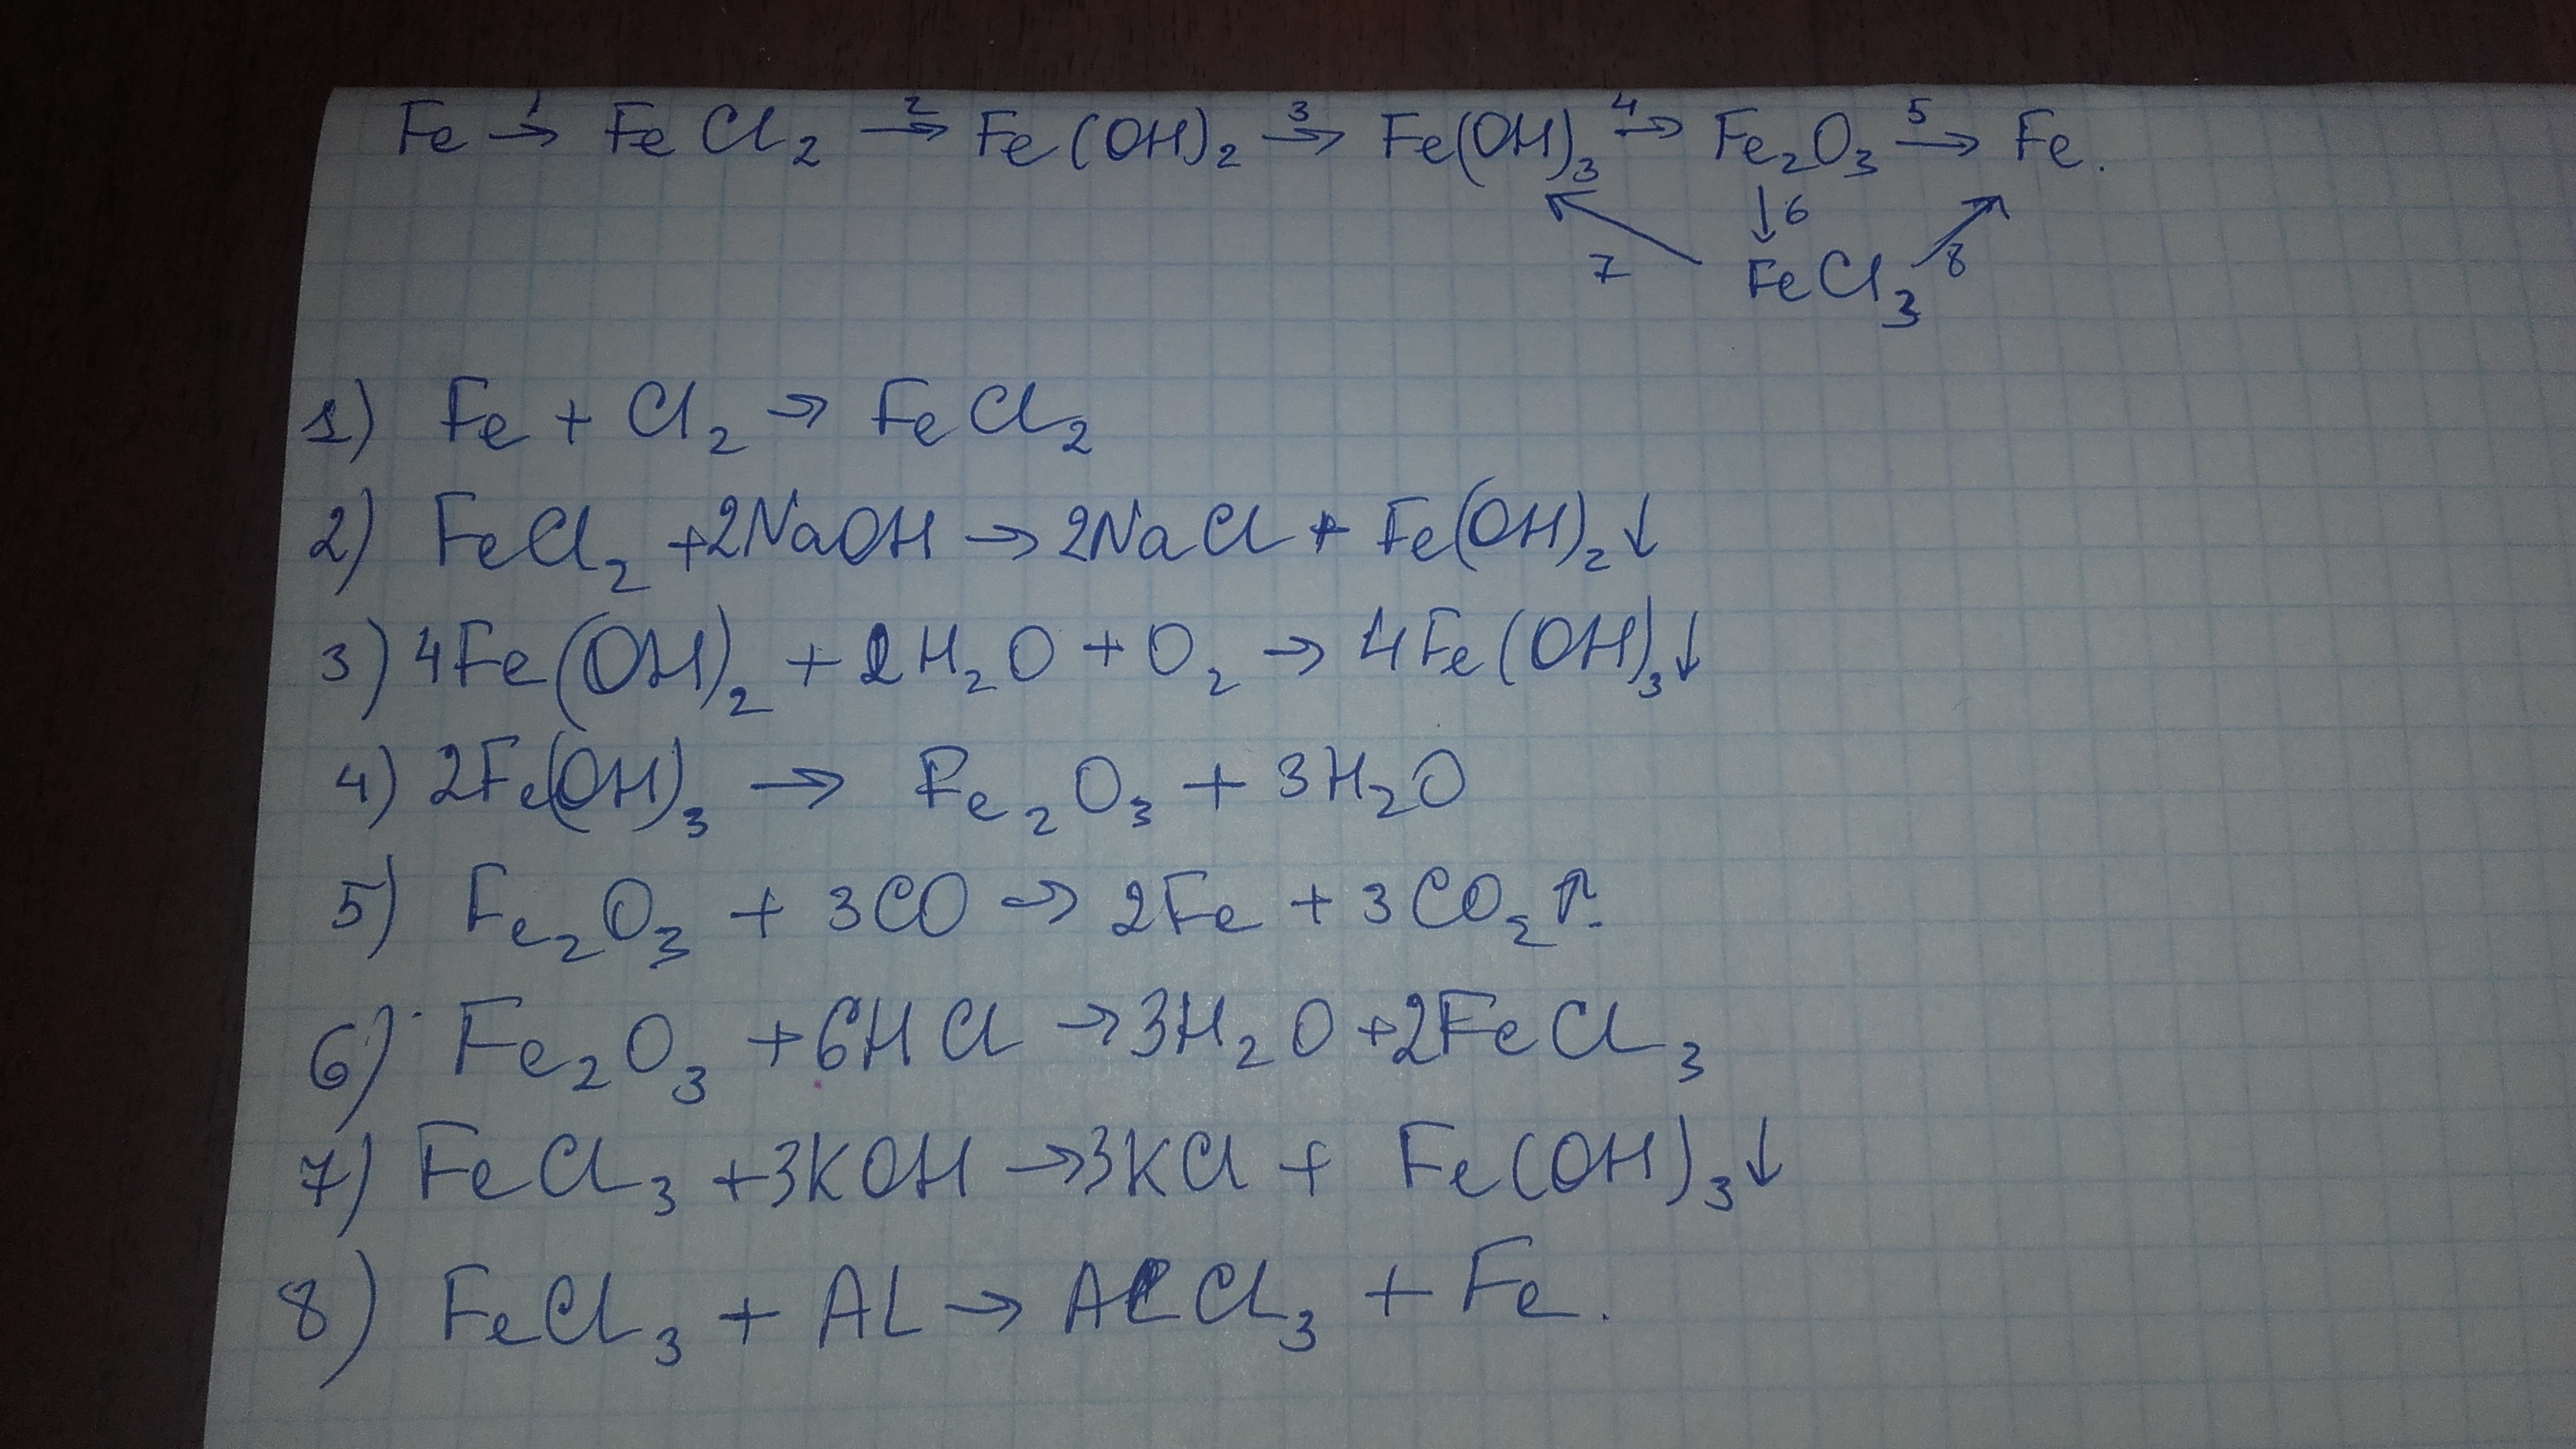 Fe →¹ FeCl₂ →² Fe(OH)₂ →³ Fe(OH)₃ →⁴ Fe₂O₃ →⁵ Fe.
↓6
7 FeCl₃ 8
1) Fe + Cl₂ → FeCl₂
2) FeCl₂ + 2NaOH → 2NaCl + Fe(OH)₂↓
3) 4Fe(OH)₂ + 2H₂O + O₂ → 4Fe(OH)₃↓
4) 2Fe(OH)₃ → Fe₂O₃ + 3H₂O
5) Fe₂O₃ + 3CO → 2Fe + 3CO₂↑
6) Fe₂O₃ + 6HCl → 3H₂O + 2FeCl₃
7) FeCl₃ + 3KOH → 3KCl + Fe(OH)₃↓
8) FeCl₃ + Al → AlCl₃ + Fe.